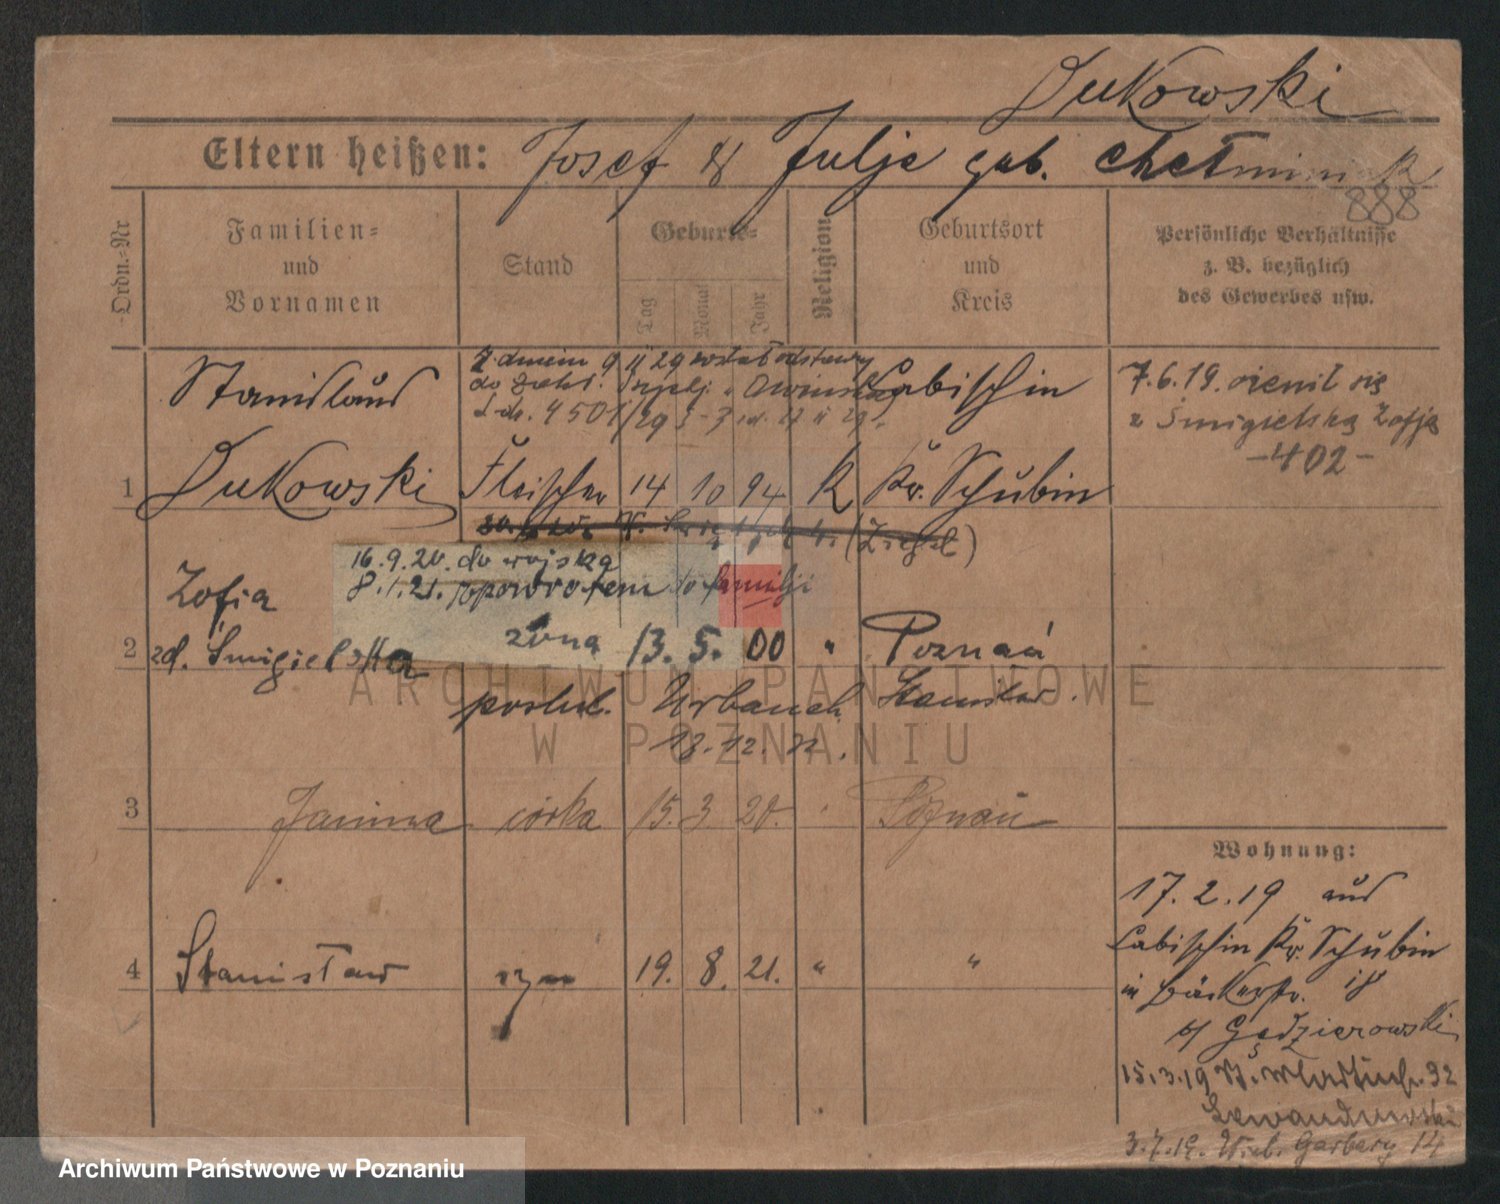 Dukowski
Eltern heißen: Josef & Julje geb. Chełminiak
888
Ordn.-Nr
Familien-
und
Vornamen
Stand
Geburts-
Tag
Monat
Jahr
Religion
Geburtsort
und
Kreis
Persönliche Verhältnisse
z. B. bezüglich
des Gewerbes usw.
Z dniem 9 II 29 został odstawy
do
4501/29
Stanislaus
Labischin
7.6.19. ożenił się
z Śmigielską Zofją
-402-
1 Dukowski Fleischer 14 10 94 K Kr. Schubin
16.9.20. do wojska
8.1.21. z powrotem do familji
Zofia
2 zd. Śmigielska żona 13. 5. 00 " Poznań
poślub. Urbanek Stanisław.
13.12. 22.
3 Janina córka 15. 3. 20. Poznań
Wohnung:
17.2.19 aus
Labischin Kr. Schubin
in Bäckerstr. 18
b/ Gędzierowski
4 Stanisław syn 19. 8. 21. " "
15.3.19 32
Lewandowski
3.7.19. Garbary 14
ARCHIWUM PAŃSTWOWE
W POZNANIU
Archiwum Państwowe w Poznaniu